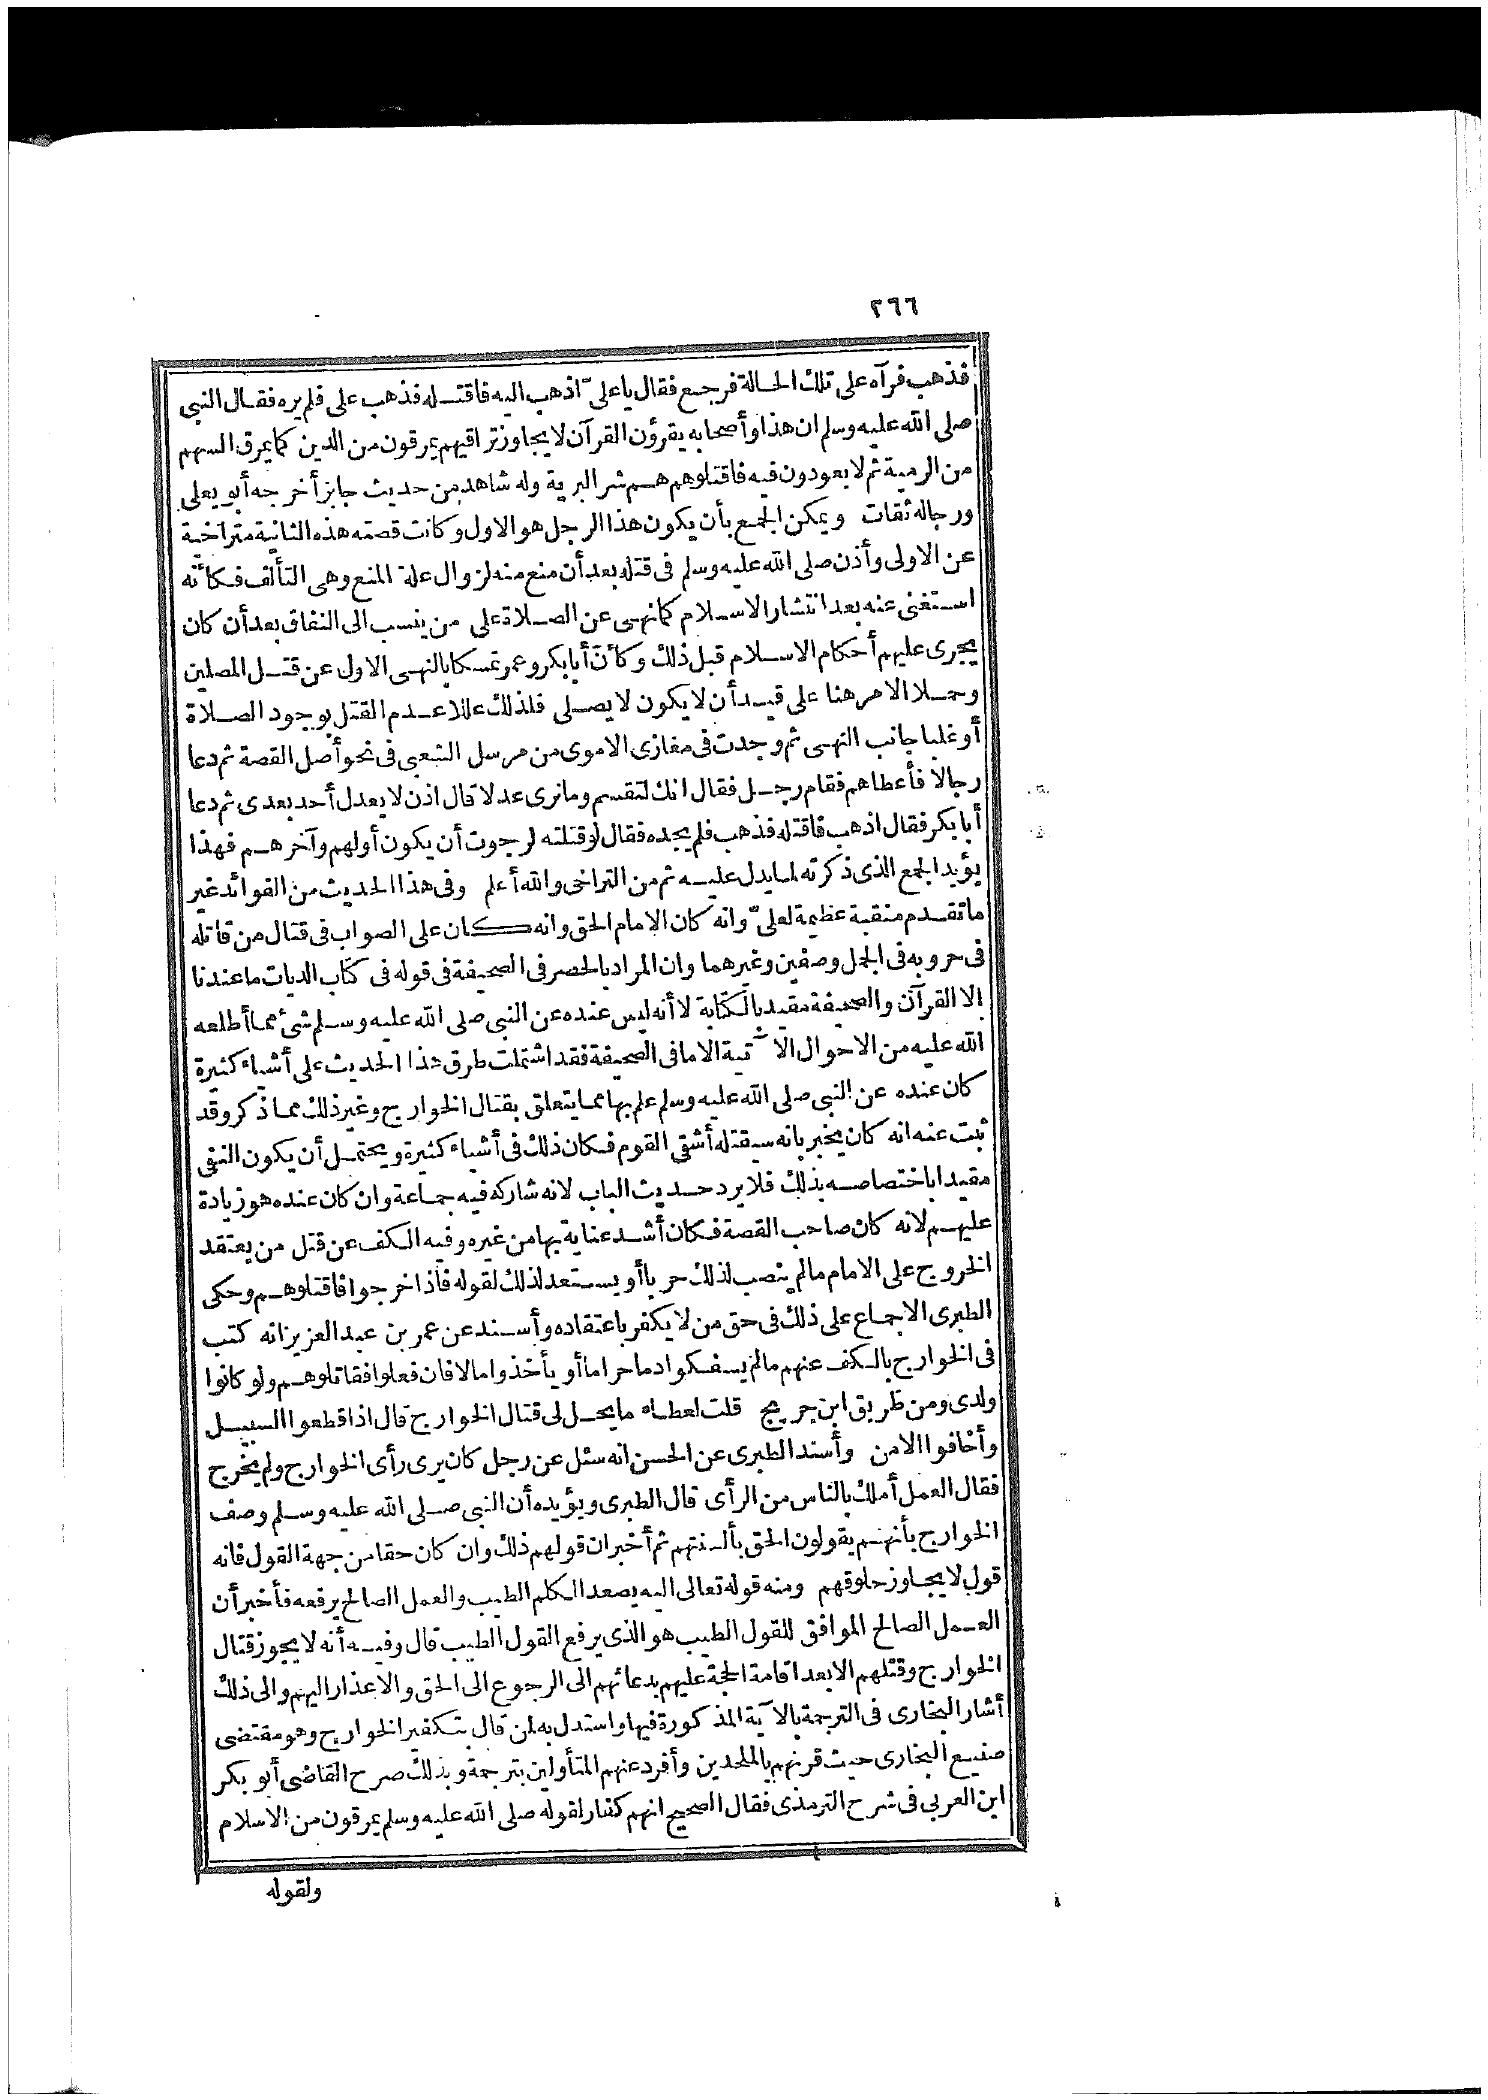 ٢٦٦
فذهب فرآه على تلك الحالة فرجع فقال يا علىّ اذهب اليه فاقتله فذهب على فلم يره فقال النبى
صلى الله عليه وسلم ان هذا وأصحابه يقرؤن القرآن لا يجاوز تراقيهم يمرقون من الدين كما يمرق السهم
من الرمية ثم لا يعودون فيه فاقتلوهم هم شر البرية وله شاهد من حديث جابر أخرجه أبو يعلى
ورجاله ثقات ويمكن الجمع بأن يكون هذا الرجل هو الاول وكانت قصته هذه الثانية متراخية
عن الاولى وأذن صلى الله عليه وسلم فى قتله بعد أن منع منه لزوال علة المنع وهى التألف فكأنه
استغنى عنه بعد انتشار الاسلام كما نهى عن الصلاة على من ينسب الى النفاق بعد أن كان
يجرى عليهم أحكام الاسلام قبل ذلك وكأن أبا بكر وعمر تمسكا بالنهى الاول عن قتل المصلين
وحملا الامر هنا على قيد أن لا يكون لا يصلى فلذلك عللا عدم القتل بوجود الصلاة
أو غلبا جانب النهى ثم وجدت فى مغازى الاموى من مرسل الشعبى فى نحو أصل القصة ثم دعا
رجالا فأعطاهم فقام رجل فقال انك لتقسم وما نرى عدلا قال اذن لا يعدل أحد بعدى ثم دعا
أبا بكر فقال اذهب فاقتله فذهب فلم يجده فقال لو قتلته لرجوت أن يكون أولهم وآخرهم فهذا
يؤيد الجمع الذى ذكرته لما يدل عليه ثم من التراخى والله أعلم وفى هذا الحديث من الفوائد غير
ما تقدم منقبة عظيمة لعلىّ وانه كان الامام الحق وانه كان على الصواب فى قتال من قاتله
فى حروبه فى الجمل وصفين وغيرهما وان المراد بالحصر فى الصحيفة فى قوله فى كتاب الديات ما عندنا
الا القرآن والصحيفة مقيد بالكتابة لا أنه ليس عنده عن النبى صلى الله عليه وسلم شئ مما أطلعه
الله عليه من الاحوال الآتية الا ما فى الصحيفة فقد اشتملت طرق هذا الحديث على أشياء كثيرة
كان عنده عن النبى صلى الله عليه وسلم علم بها مما يتعلق بقتال الخوارج وغير ذلك مما ذكر وقد
ثبت عنه انه كان يخبر بانه سيقتله أشقى القوم فكان ذلك فى أشياء كثيرة ويحتمل أن يكون النفى
مقيدا باختصاصه بذلك فلا يرد حديث الباب لانه شاركه فيه جماعة وان كان عنده هو زيادة
عليهم لانه كان صاحب القصة فكان أشد عناية بها من غيره وفيه الكف عن قتل من يعتقد
الخروج على الامام ما لم ينصب لذلك حربا أو يستعد لذلك لقوله فاذا خرجوا فاقتلوهم وحكى
الطبرى الاجماع على ذلك فى حق من لا يكفر باعتقاده وأسند عن عمر بن عبد العزيز انه كتب
فى الخوارج بالكف عنهم ما لم يسفكوا دما حراما أو يأخذوا مالا فان فعلوا فقاتلوهم ولو كانوا
ولدى ومن طريق ابن جريج قلت لعطاء ما يحل لى قتال الخوارج قال اذا قطعوا السبيل
وأخافوا الامن وأسند الطبرى عن الحسن انه سئل عن رجل كان يرى رأى الخوارج ولم يخرج
فقال العمل أملك بالناس من الرأى قال الطبرى ويؤيده أن النبى صلى الله عليه وسلم وصف
الخوارج بأنهم يقولون الحق بألسنتهم ثم أخبر ان قولهم ذلك وان كان حقا من جهة القول فانه
قول لا يجاوز حلوقهم ومنه قوله تعالى اليه يصعد الكلم الطيب والعمل الصالح يرفعه فأخبر أن
العمل الصالح الموافق للقول الطيب هو الذى يرفع القول الطيب قال وفيه أنه لا يجوز قتال
الخوارج وقتلهم الا بعد اقامة الحجة عليهم بدعائهم الى الرجوع الى الحق والاعذار اليهم والى ذلك
أشار البخارى فى الترجمة بالآية المذكورة فيها واستدل به لمن قال بتكفير الخوارج وهو مقتضى
صنيع البخارى حيث قرنهم بالملحدين وأفرد عنهم المتأولين بترجمة وبذلك صرح القاضى أبو بكر
ابن العربى فى شرح الترمذى فقال الصحيح انهم كفار لقوله صلى الله عليه وسلم يمرقون من الاسلام
ولقوله